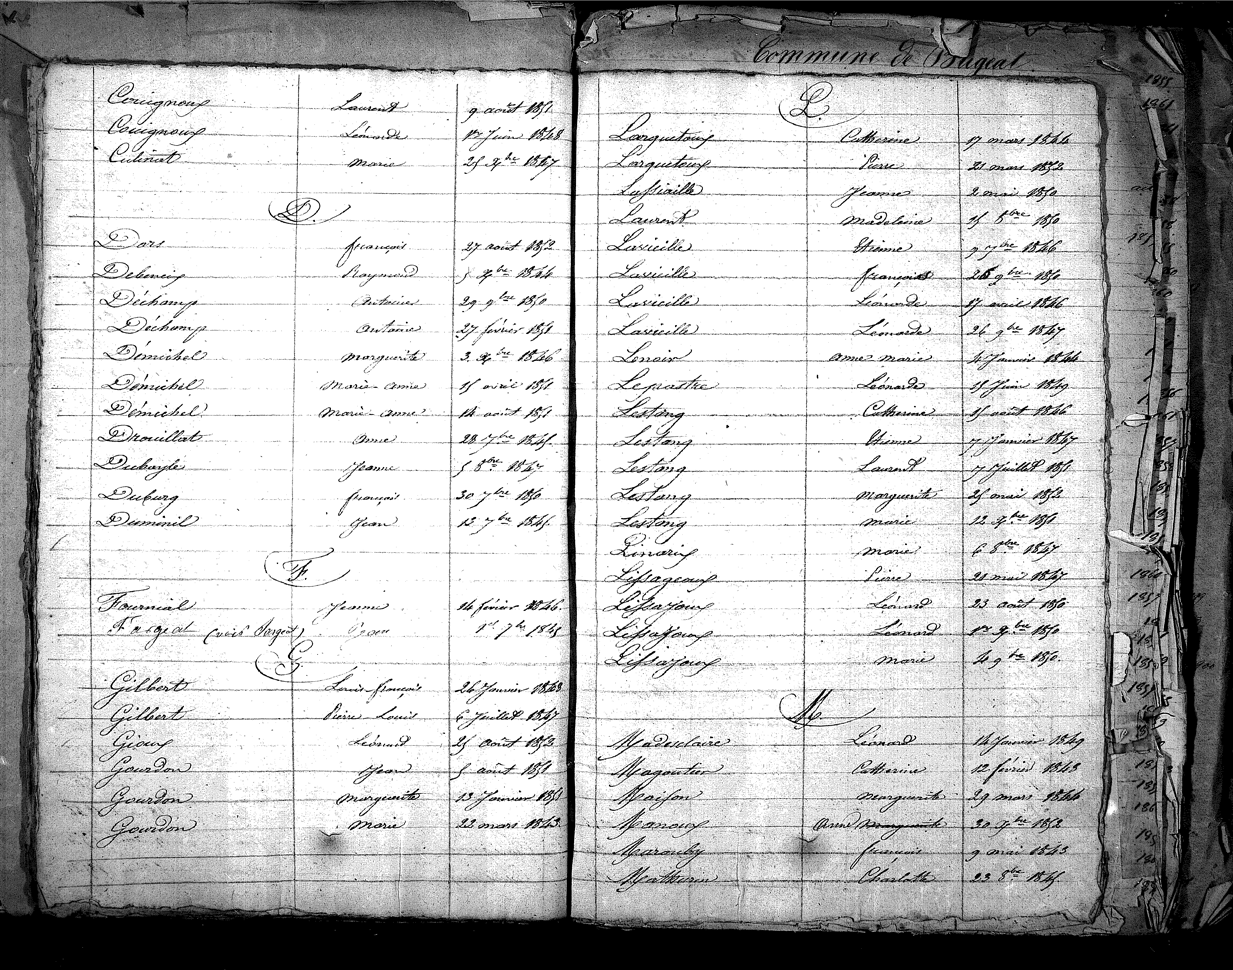 Commune de Bugeat
Couignoux Laurent 9 août 1851
Couignoux Léonarde 17 Juin 1848
Culinat marie 25 Xbre 1847
D.
Dars françois 27 août 1852
Raymond 5 Xbre 1844
Déchamp Antoine 29 9bre 1850
Déchamp antoine 27 février 1851
Démichel marguerite 3 Xbre 1846
Démichel Marie-anne 15 avril 1851
Démichel Marie-anne 14 août 1851
Drouillat anne 28 7bre 1845
Dubayle Jeanne 5 8bre 1847
Duburg françois 30 7bre 1850
Duminil Jean 13 7bre 1845
F.
Fournial Jeanne 24 février 1846
Fargeat (voir Sargeat) Jean 1er 7bre 1845
G
Gilbert Louis-françois 26 Janvier 1848
Gilbert Pierre Louis 6 Juillet 1847
Gioux Léonard 25 août 1853
Gourdon Jean 5 août 1851
Gourdon Marguerite 13 Janvier 1851
Gourdon Marie 22 mars 1843
L.
Larquetoux Catherine 17 mars 1844
Larquetoux Pierre 21 mars 1852
Lassiaille Jeanne 2 mai 1850
Laurent Madeleine 15 8bre 1850
Lavieille Etienne 9 7bre 1846
Lavieille françois 26 9bre 1850
Lavieille Léonarde 17 avril 1846
Lavieille Léonarde 26 9bre 1847
Lenoir anne-marie 4 Janvier 1844
Lepastre Léonarde 15 Juin 1849
Lestang Catherine 15 août 1846
Lestang Etienne 7 Janvier 1847
Lestang Laurent 7 Juillet 1851
Lestang Marguerite 25 mai 1852
Lestang Marie 12 Xbre 1851
Linarix Marie 6 8bre 1847
Lissageoux Pierre 21 mai 1847
Lissajoux Léonard 23 août 1850
Lissajoux Léonard 17 Xbre 1850
Lissajoux Marie 4 9bre 1850
M.
Madesclaire Léonard 14 Janvier 1849
Magoutier Catherine 12 février 1843
Maison Marguerite 29 mars 1844
Manoux Anne Marguerite 30 7bre 1852
Marouby françois 9 mai 1843
Mathurin Charlotte 23 8bre 1845